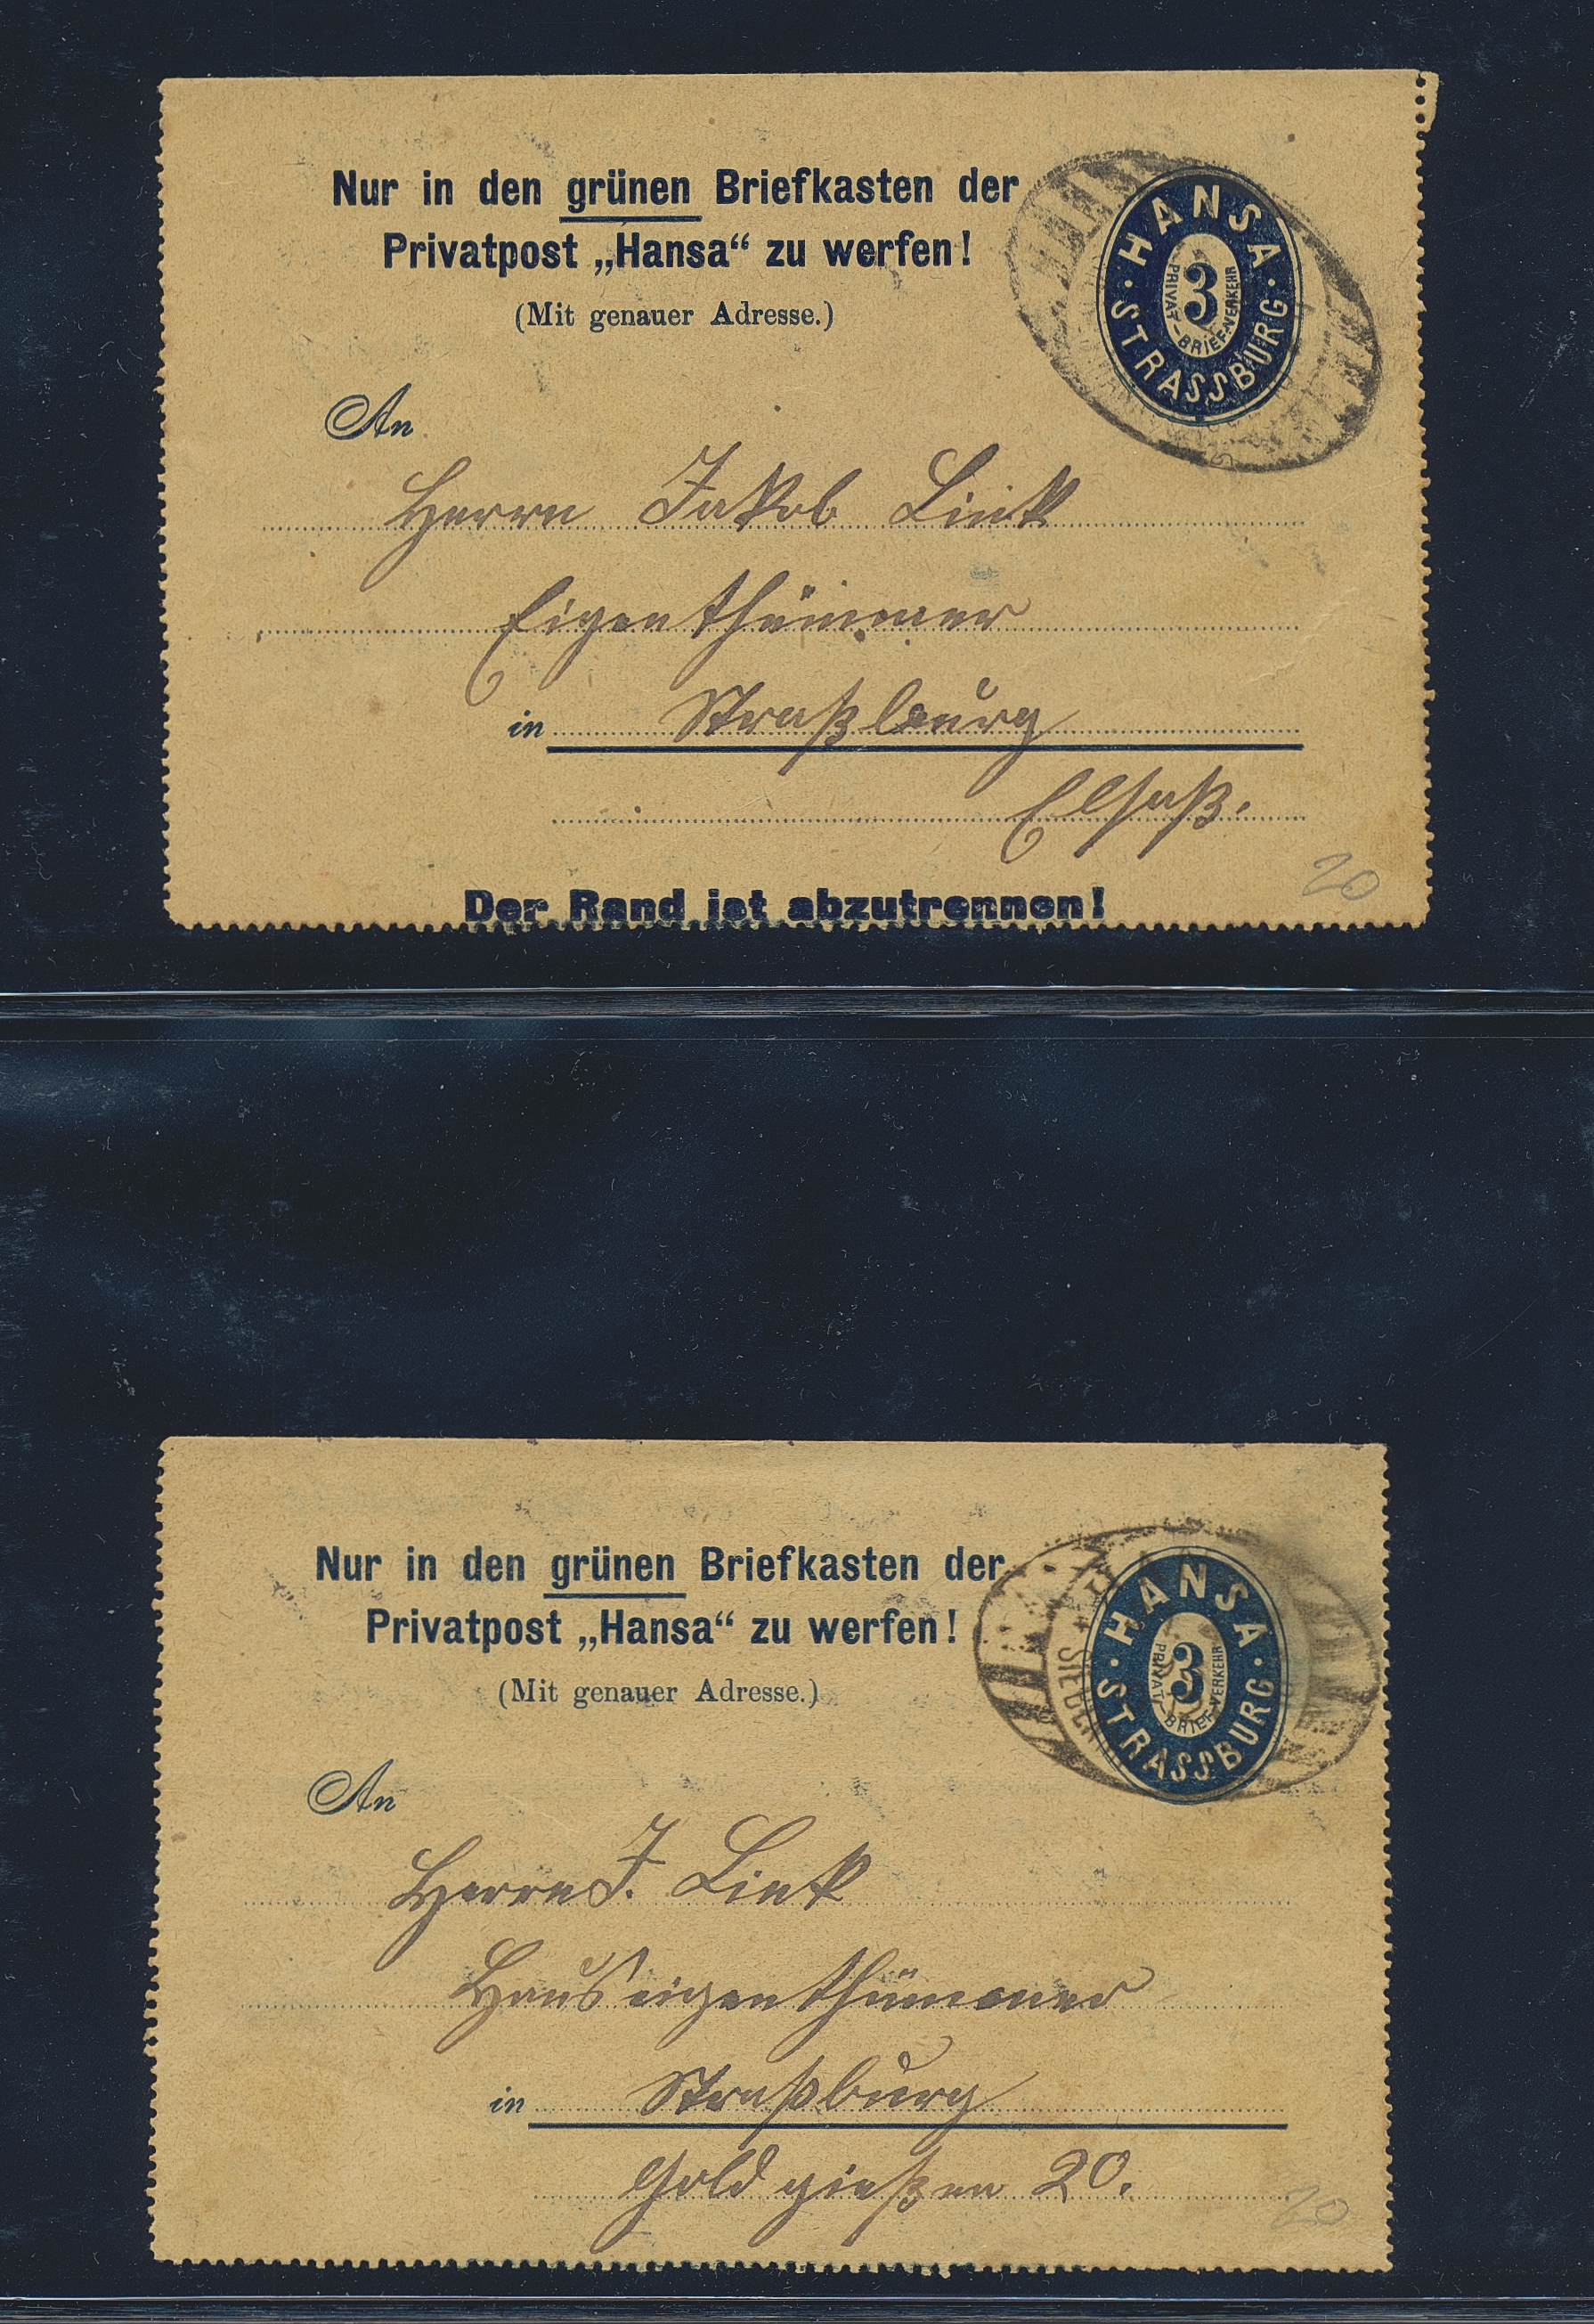 Nur in den grünen Briefkasten der
Privatpost „Hansa“ zu werfen!
(Mit genauer Adresse.)
HANSA
3
PRIVAT-BRIEF-VERKEHR
STRASSBURG
An
Herrn Jakob Link
Eigenthümmer
in Straßburg
Elsaß.
20
Der Rand ist abzutrennen!
Nur in den grünen Briefkasten der
Privatpost „Hansa“ zu werfen!
(Mit genauer Adresse.)
HANSA
3
PRIVAT-BRIEF-VERKEHR
STRASSBURG
An
Herrn J. Link
Hauseigenthümmer
in Straßburg
Goldgießen 20.
20